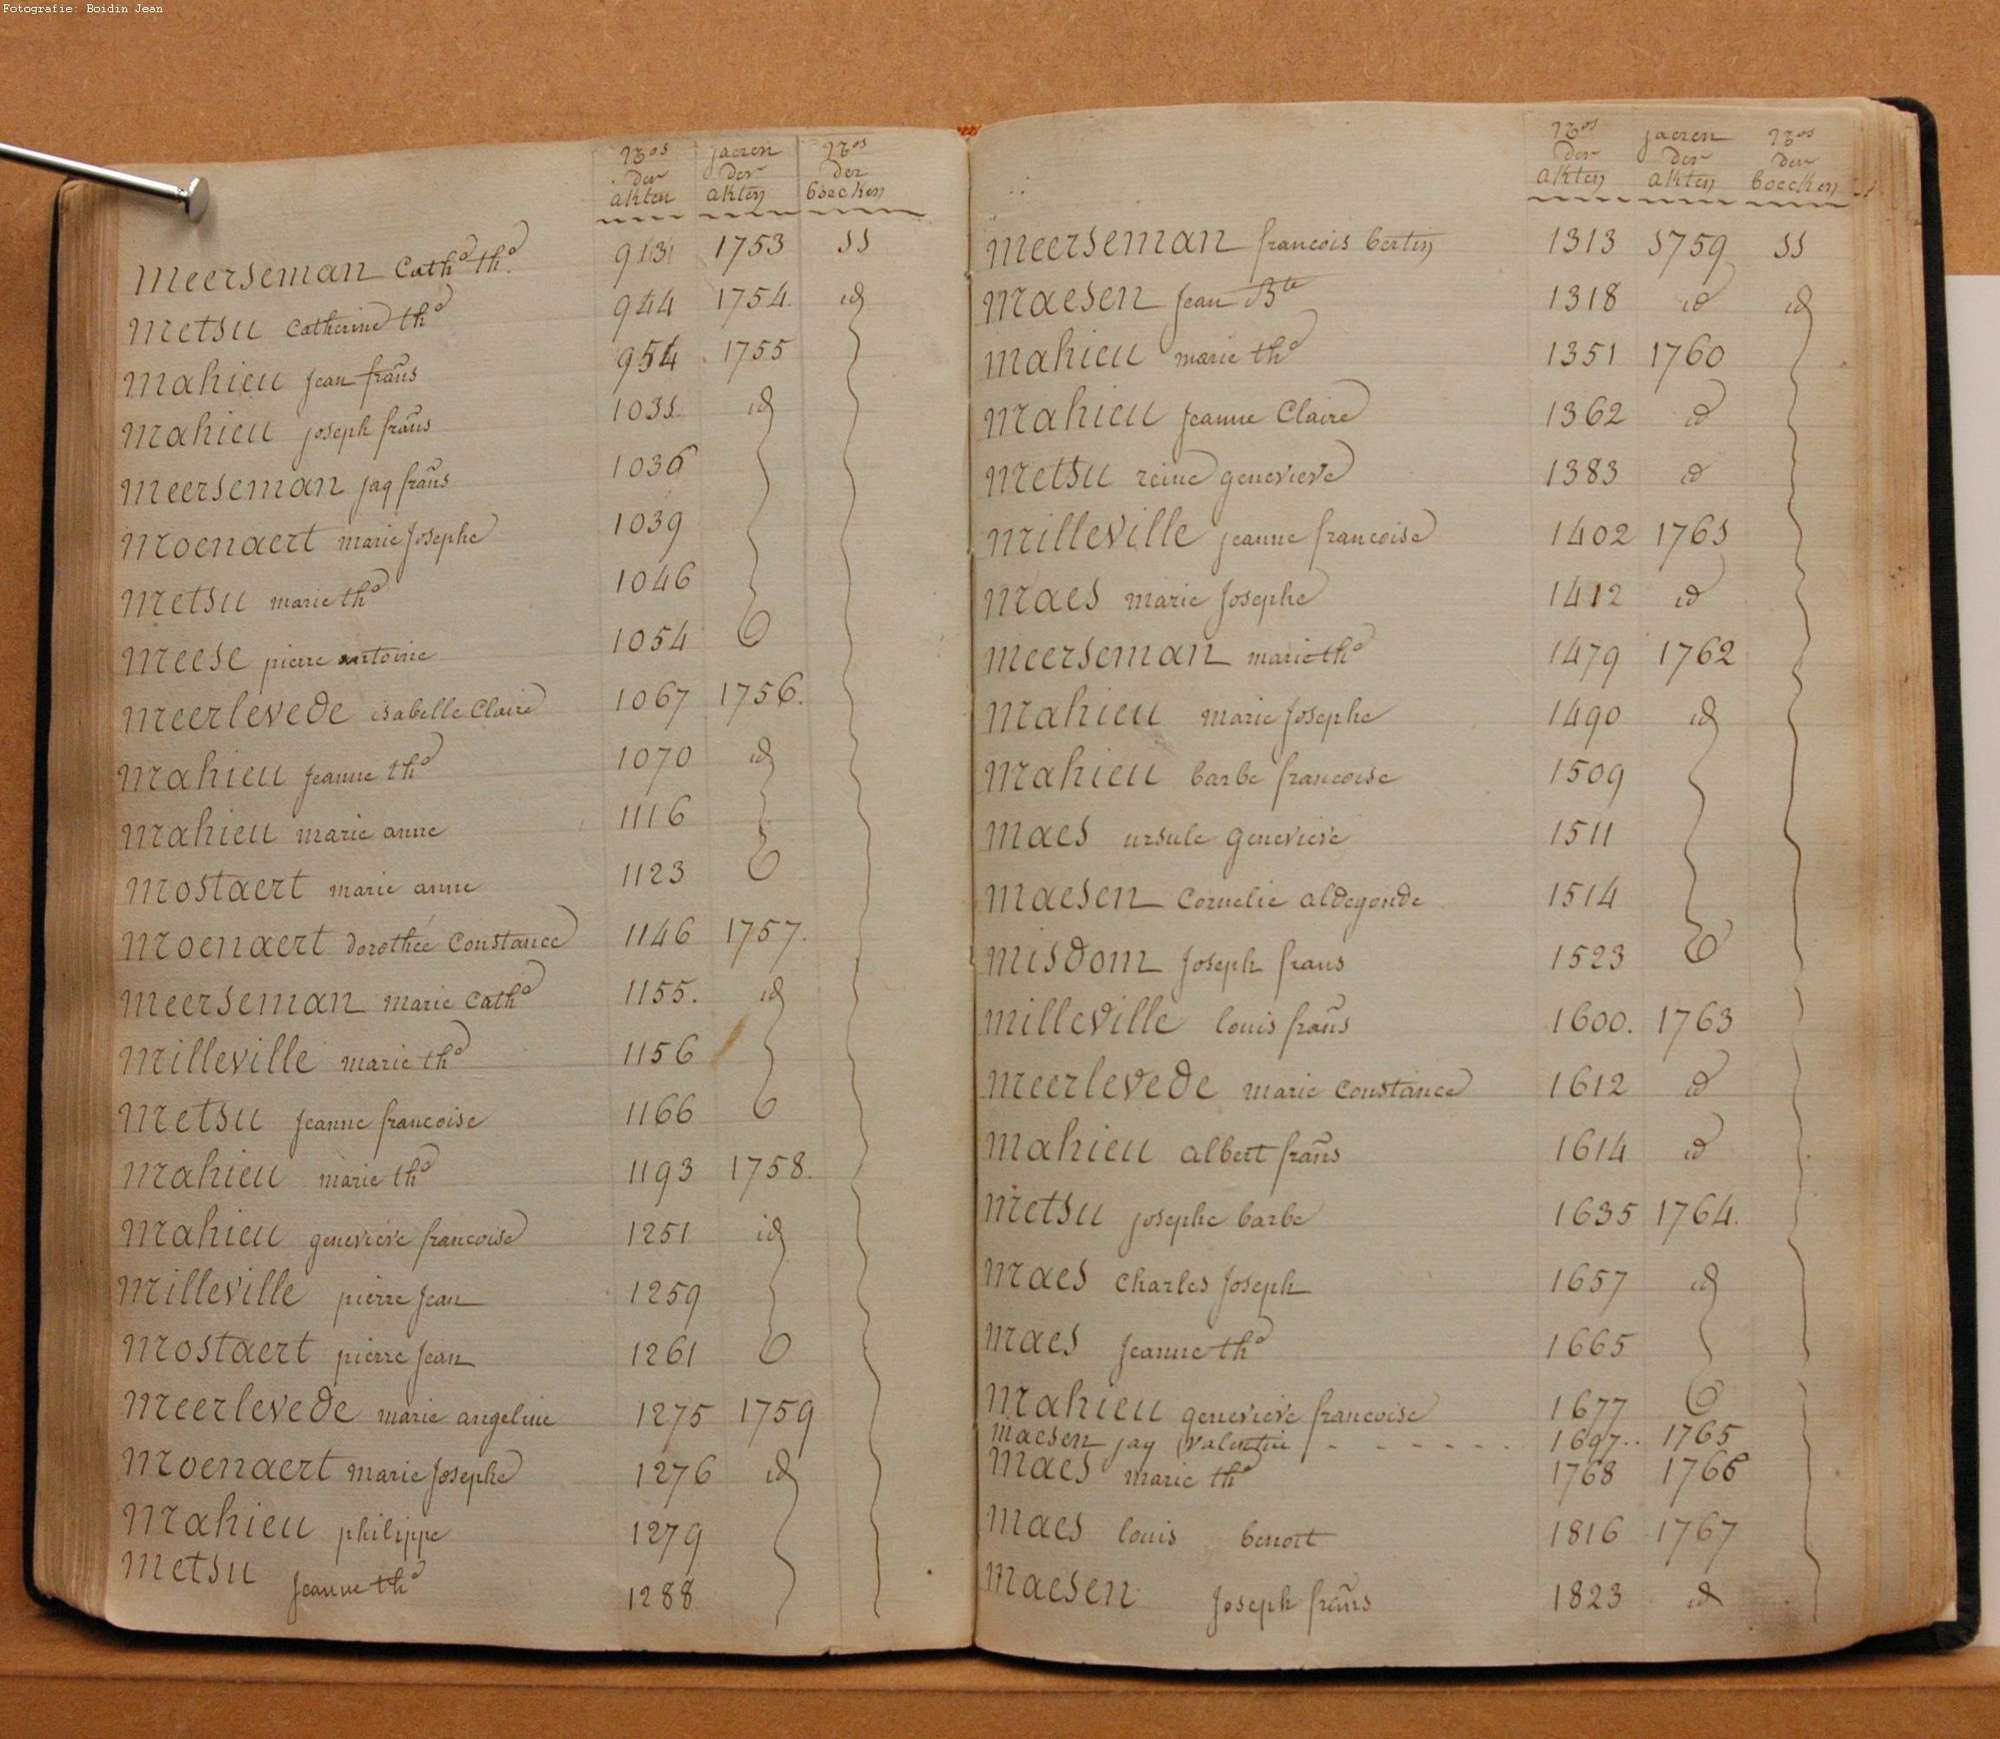 Fotografie: Boidin Jean
Nos der akten jaeren der akten Nos der boecken
Meerseman Catha tha 913 1753 11
Metsu Catherine tha 944 1754. id
Mahieu Jean frans 954 1755
Mahieu joseph frans 1031 id
Meerseman jaq frans 1036
Moenaert marie Josephe 1039
Metsu marie tha 1046
Meese pierre antoine 1054
Meerlevede isabelle Claire 1067 1756.
Mahieu Jeanne tha 1070 id
Mahieu marie anne 1116
Mostaert marie anne 1123
Moenaert dorothée Constance 1146 1757.
Meerseman marie Catha 1155. id
Milleville marie tha 1156
Metsu Jeanne francoise 1166
Mahieu marie tha 1193 1758.
Mahieu genevieve francoise 1251 id
Milleville pierre Jean 1259
Mostaert pierre Jean 1261
Meerlevede marie angeline 1275 1759
Moenaert marie Josephe 1276 id
Mahieu philippe 1279
Metsu Jeanne tha 1288
Nos der akten jaeren der akten Nos der boecken
Meerseman francois bertin 1313 1759 11
Maesen Jean Bte 1318 id id
Mahieu marie tha 1351 1760
Mahieu Jeanne Claire 1362 id
Metsu reine genevieve 1383 id
Milleville jeanne francoise 1402 1761
Maes marie Josephe 1412 id
Meerseman marie tha 1479 1762
Mahieu marie Josephe 1490 id
Mahieu barbe francoise 1509
Maes ursule genevieve 1511
Maesen Cornelie aldegonde 1514
Misdom Joseph frans 1523
Milleville louis frans 1600. 1763
Meerlevede marie Constance 1612 id
Mahieu albert frans 1614 id
Metsu josephe barbe 1635 1764.
Maes Charles Joseph 1657 id
Maes Jeanne tha 1665
Mahieu genevieve francoise 1677
Maesen jaq valentin 1697 1765
Maes marie tha 1768 1766
Maes louis benoit 1816 1767
Maesen Joseph frans 1823 id